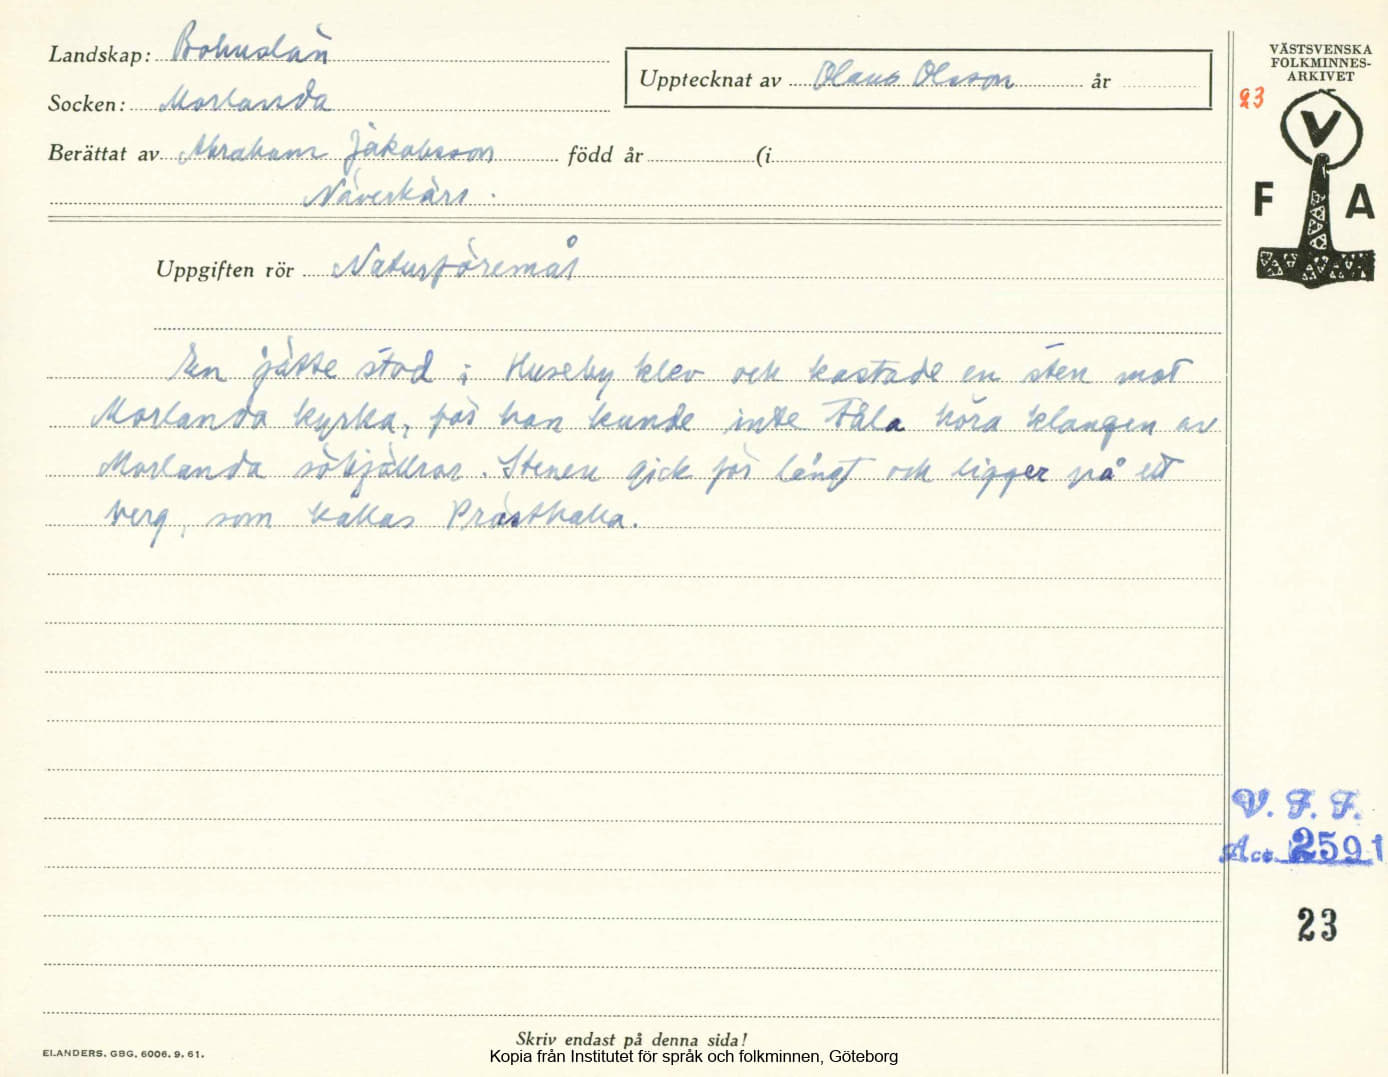 Landskap: Bohuslän
Socken: Morlanda
Upptecknat av Olaus Olsson år
Berättat av Abraham Jakobsson född år (i
Näverkärr.
VÄSTSVENSKA
FOLKMINNES-
ARKIVET
93
V
F A
Uppgiften rör Naturföremål
En jätte stod i Huseby klev och kastade en sten mot
Morlanda kyrka, för han kunde inte tåla höra klangen av
Morlanda Stenen gick för långt och ligger på ett
berg, som kallas Prästhaka.
V. F. F.
Acc. 2591
23
Skriv endast på denna sida!
ELANDERS. GBG, 6006. 9. 61.
Kopia från Institutet för språk och folkminnen, Göteborg